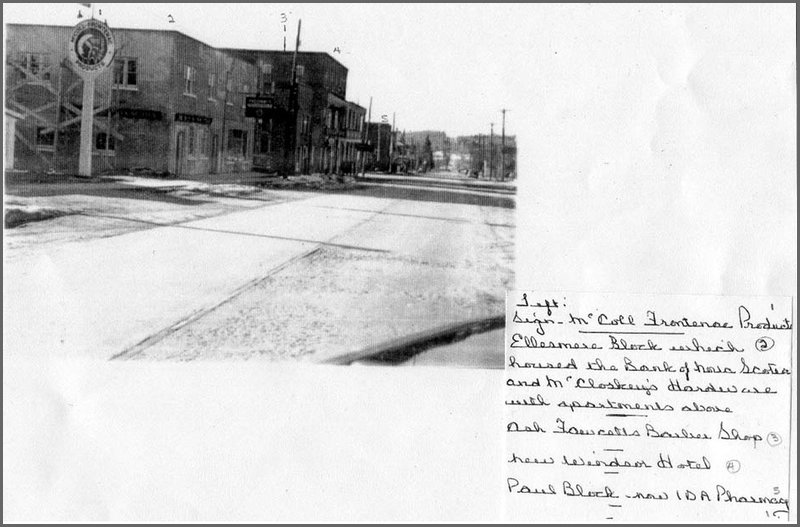 1
2
3
4
5
Left:
Sign - McColl Frontenac Products
Ellesmere Block which ②
housed the Bank of Nova Scotia
and McCloskey's Hardware
with apartments above
Ash Fawcetts Barber Shop ③
new Windsor Hotel ④
Paul Block - now IDA Pharmacy 5